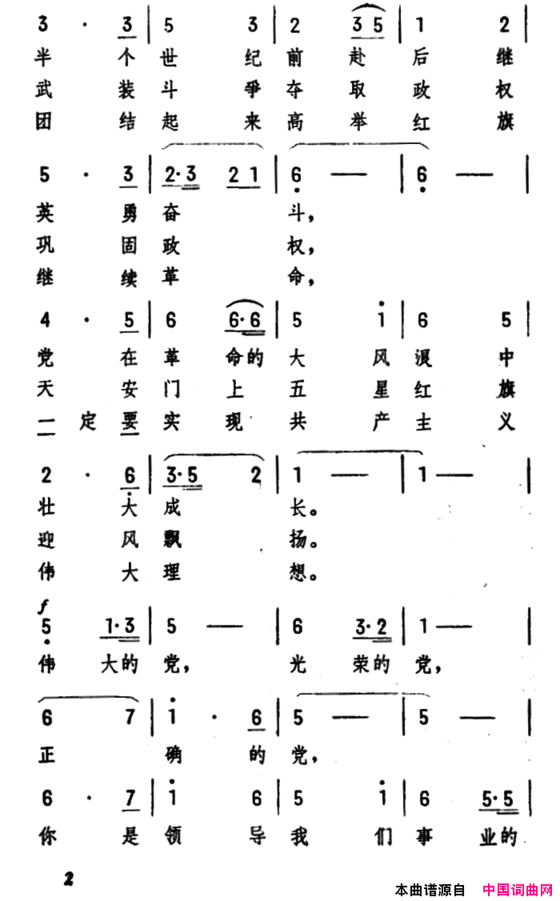 3 · 3 | 5 3 | 2 3 5 | 1 2 |
半 个 世 纪 前 赴 后 继
武 装 斗 争 夺 取 政 权
团 结 起 来 高 举 红 旗
5 · 3 | 2·3 2 1 | 6 — | 6 — |
英 勇 奋 斗，
巩 固 政 权，
继 续 革 命，
4 · 5 | 6 6·6 | 5 i | 6 5 |
党 在 革 命的 大 风 浪 中
天 安 门 上 五 星 红 旗
一 定 要 实 现 共 产 主 义
2 · 6 | 3·5 2 | 1 — | 1 — |
壮 大 成 长。
迎 风 飘 扬。
伟 大 理 想。
f
5 1·3 | 5 — | 6 3·2 | 1 — |
伟 大的 党， 光 荣的 党，
6 7 | i · 6 | 5 — | 5 — |
正 确 的 党，
6 · 7 | i 6 | 5 i | 6 5·5 |
你 是 领 导 我 们 事 业的
2
本曲谱源自 中国词曲网